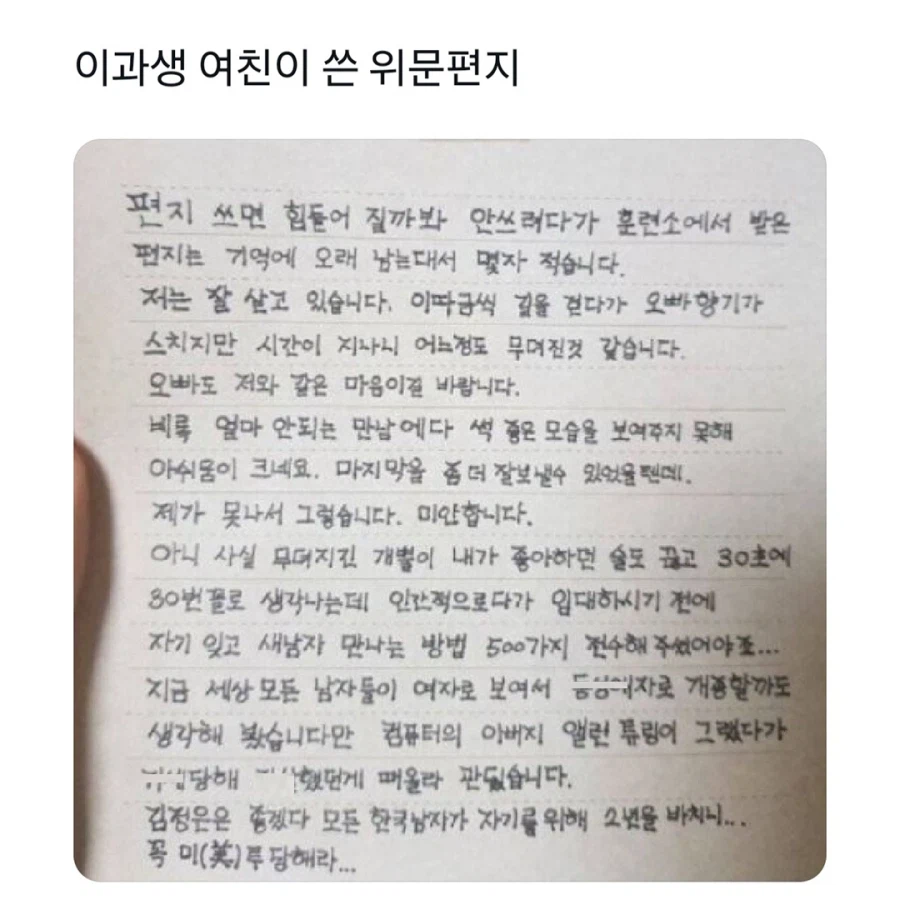 이과생 여친이 쓴 위문편지
편지 쓰면 힘들어 질까봐 안쓰려다가 훈련소에서 받은
편지는 기억에 오래 남는대서 몇자 적습니다.
저는 잘 살고 있습니다. 이따금씩 길을 걷다가 오빠향기가
스치지만 시간이 지나니 어느정도 무뎌진것 같습니다.
오빠도 저와 같은 마음이길 바랍니다.
비록 얼마 안되는 만남에다 썩 좋은 모습을 보여주지 못해
아쉬움이 크네요. 마지막을 좀 더 잘보낼수 있었을텐데.
제가 못나서 그렇습니다. 미안합니다.
아니 사실 무뎌지긴 개뿔이 내가 좋아하던 술도 끊고 30초에
30번꼴로 생각나는데 인간적으로다가 입대하시기 전에
자기 잊고 새남자 만나는 방법 500가지 전수해 주셨어야죠...
지금 세상 모든 남자들이 여자로 보여서 자로 개종할까도
생각해 봤습니다만 컴퓨터의 아버지 앨런 튜링이 그랬다가
당해 했던게 떠올라 관뒀습니다.
김정은은 좋겠다 모든 한국남자가 자기를위해 2년을 바치니...
꼭 미(美)투 당해라...